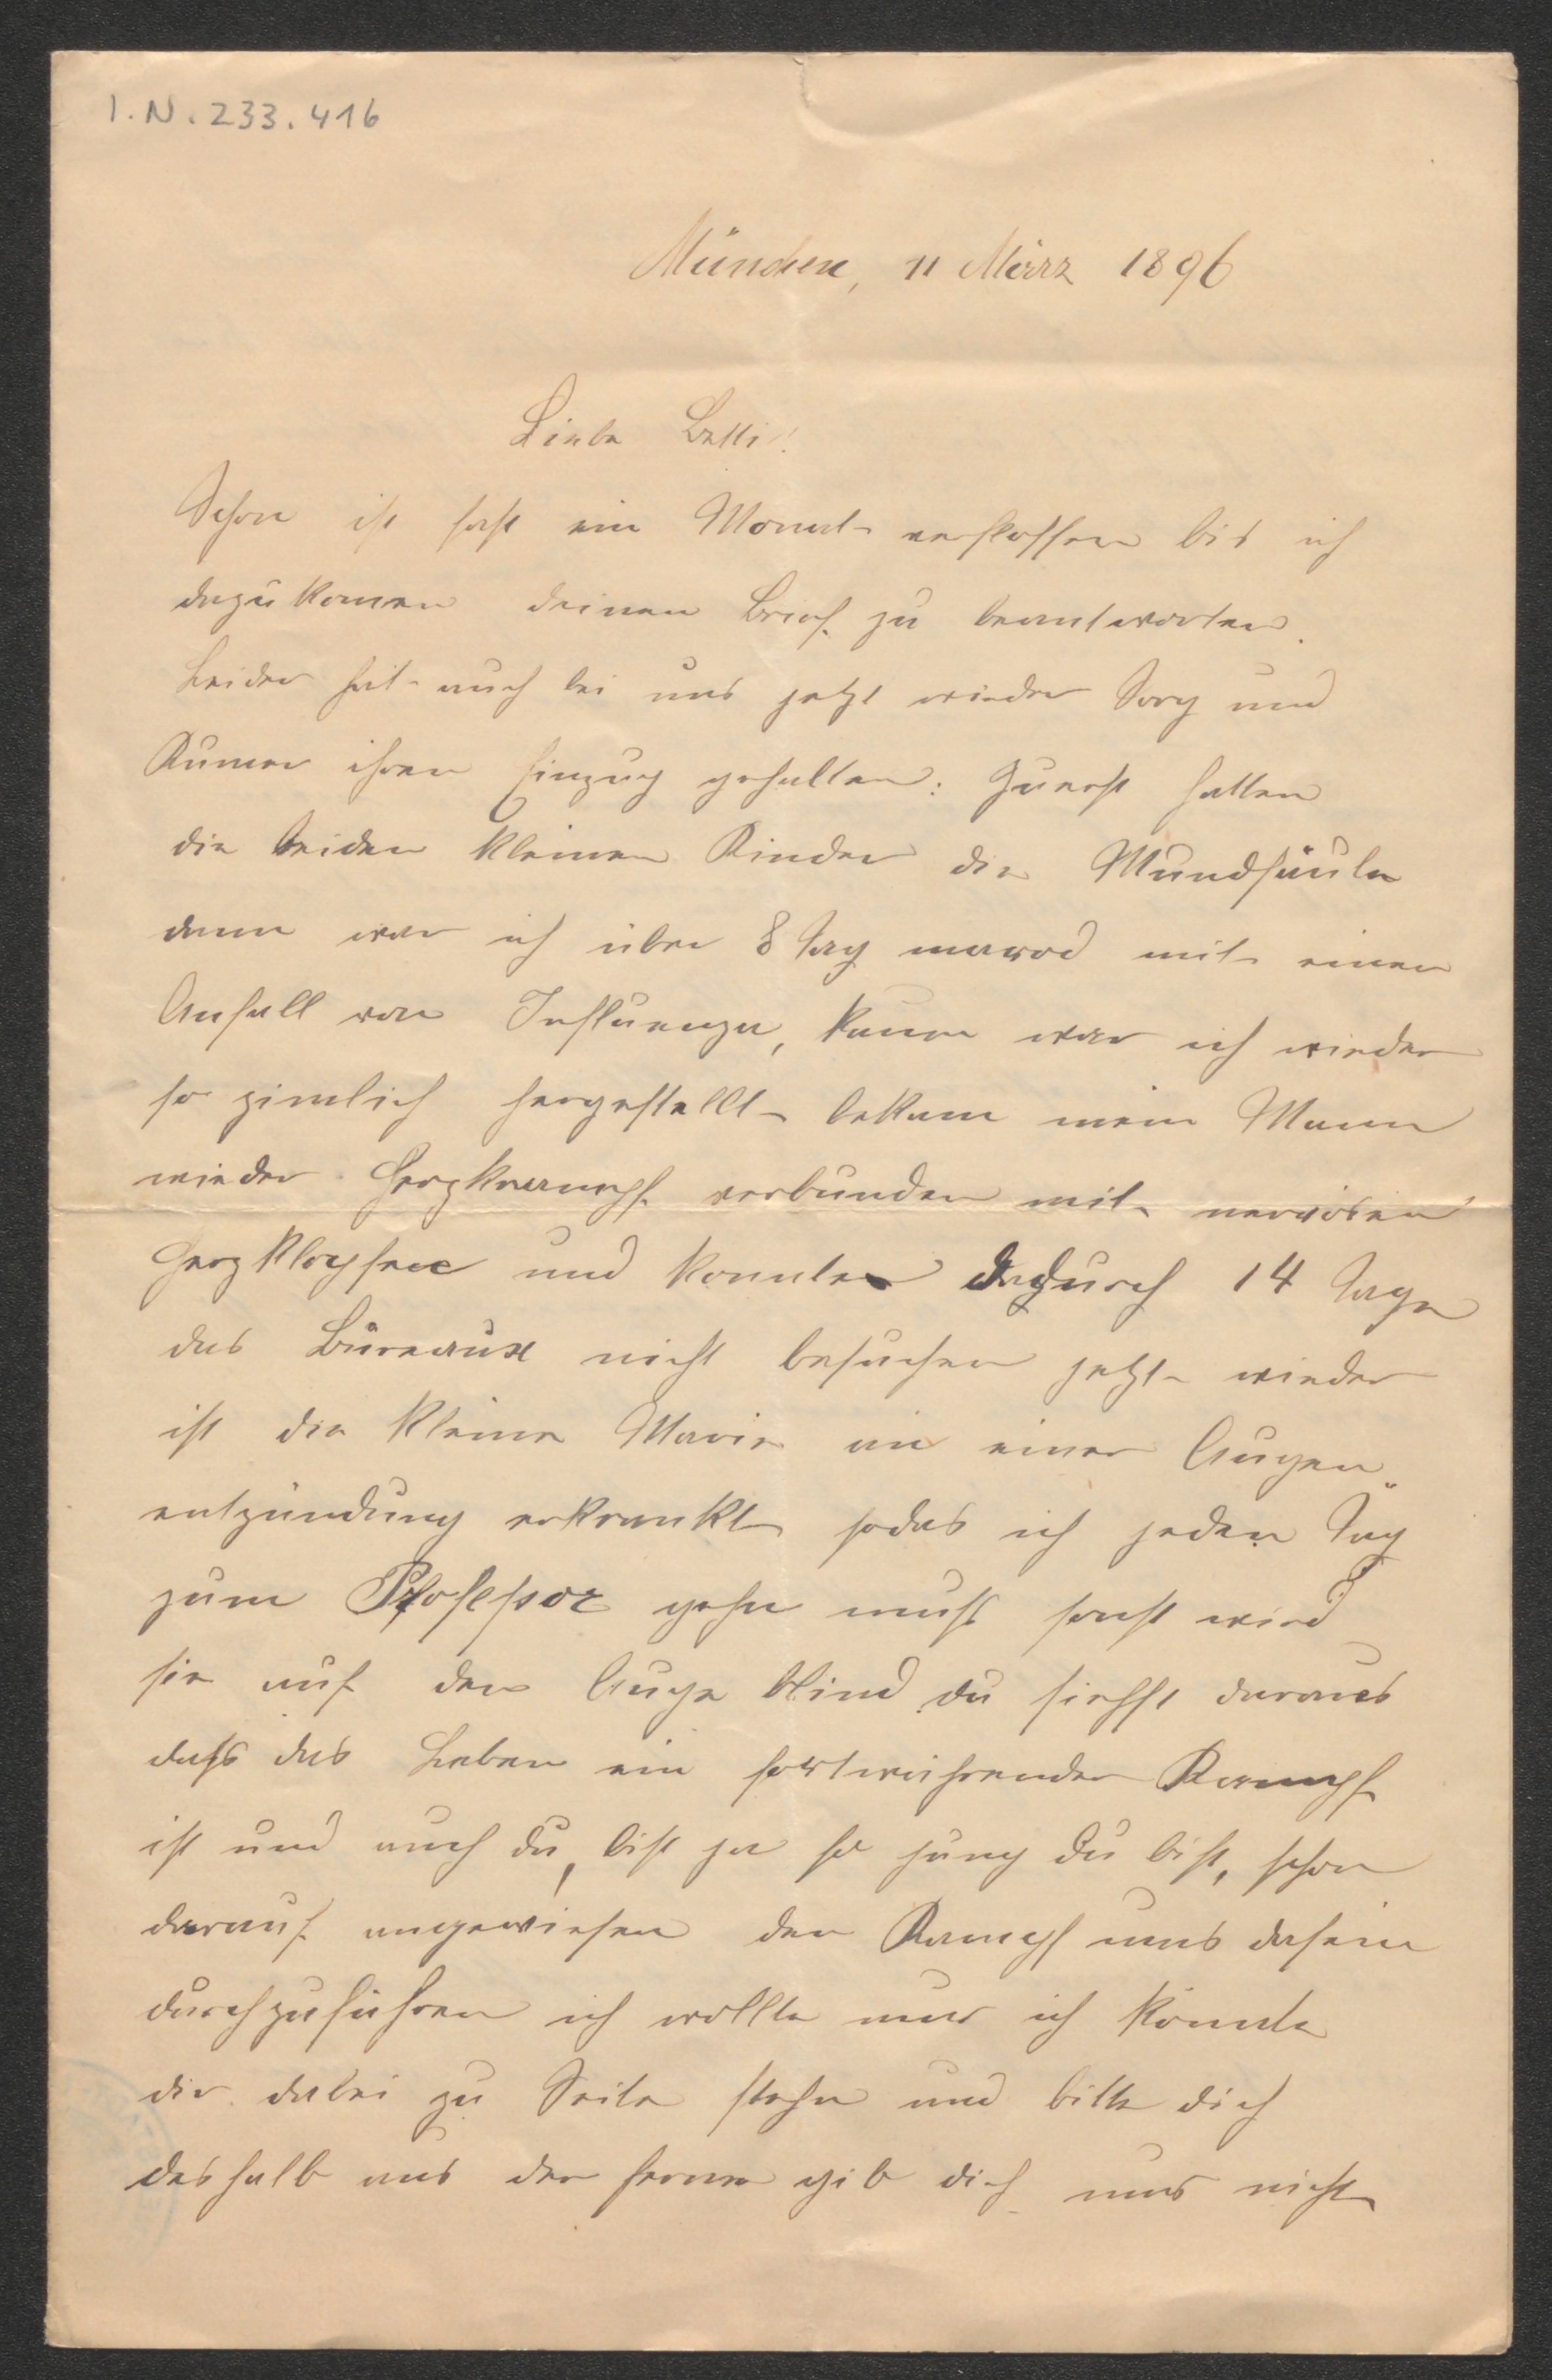 I.N. 233.416
München, 11 März 1896
Liebe Betti!
Schon ist fast ein Monat verflossen bis ich
dazu komen deinen Brief zu beantworten.
Leider hat auch bei uns jetzt wieder Sorg und
Kumer ihren Einzug gehalten: Zuerst hatten
die beiden kleinen Kinder die Mundfäule
dann war ich über 8 Tag marod mit einen
Anfall von Influenza, kaum war ich wieder
so zimlich hergestellt bekam mein Mann
wieder Herzkrampf verbunden mit nervösen
Herzklopfen und konnte dadurch 14 Tage
das Büreaux nicht besuchen jetzt wieder
ist die kleine Marie an einer Augen
entzündung erkrankt sodas ich jeden Tag
zum Professor gehn muß sonst wird
sie auf den Auge blind du siehst daraus
daß das Leben ein fortwährender Kampf
ist und auch du, bist ja so jung du bist, schon
darauf angewiesen den Kampf ums dasein
durchzuführen ich wollte nur ich könnte
dir dabei zu Seite stehn und bitte dich
deshalb aus der ferne gib dich nur nicht